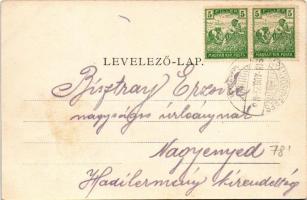 5 5
MAGYAR KIR. POSTA MAGYAR KIR. POSTA
LEVELEZŐ-LAP.
Bisztray Erzsike
nagyságos úrleánynak
Nagyenyed
78!
Hadilermény kirendeltség